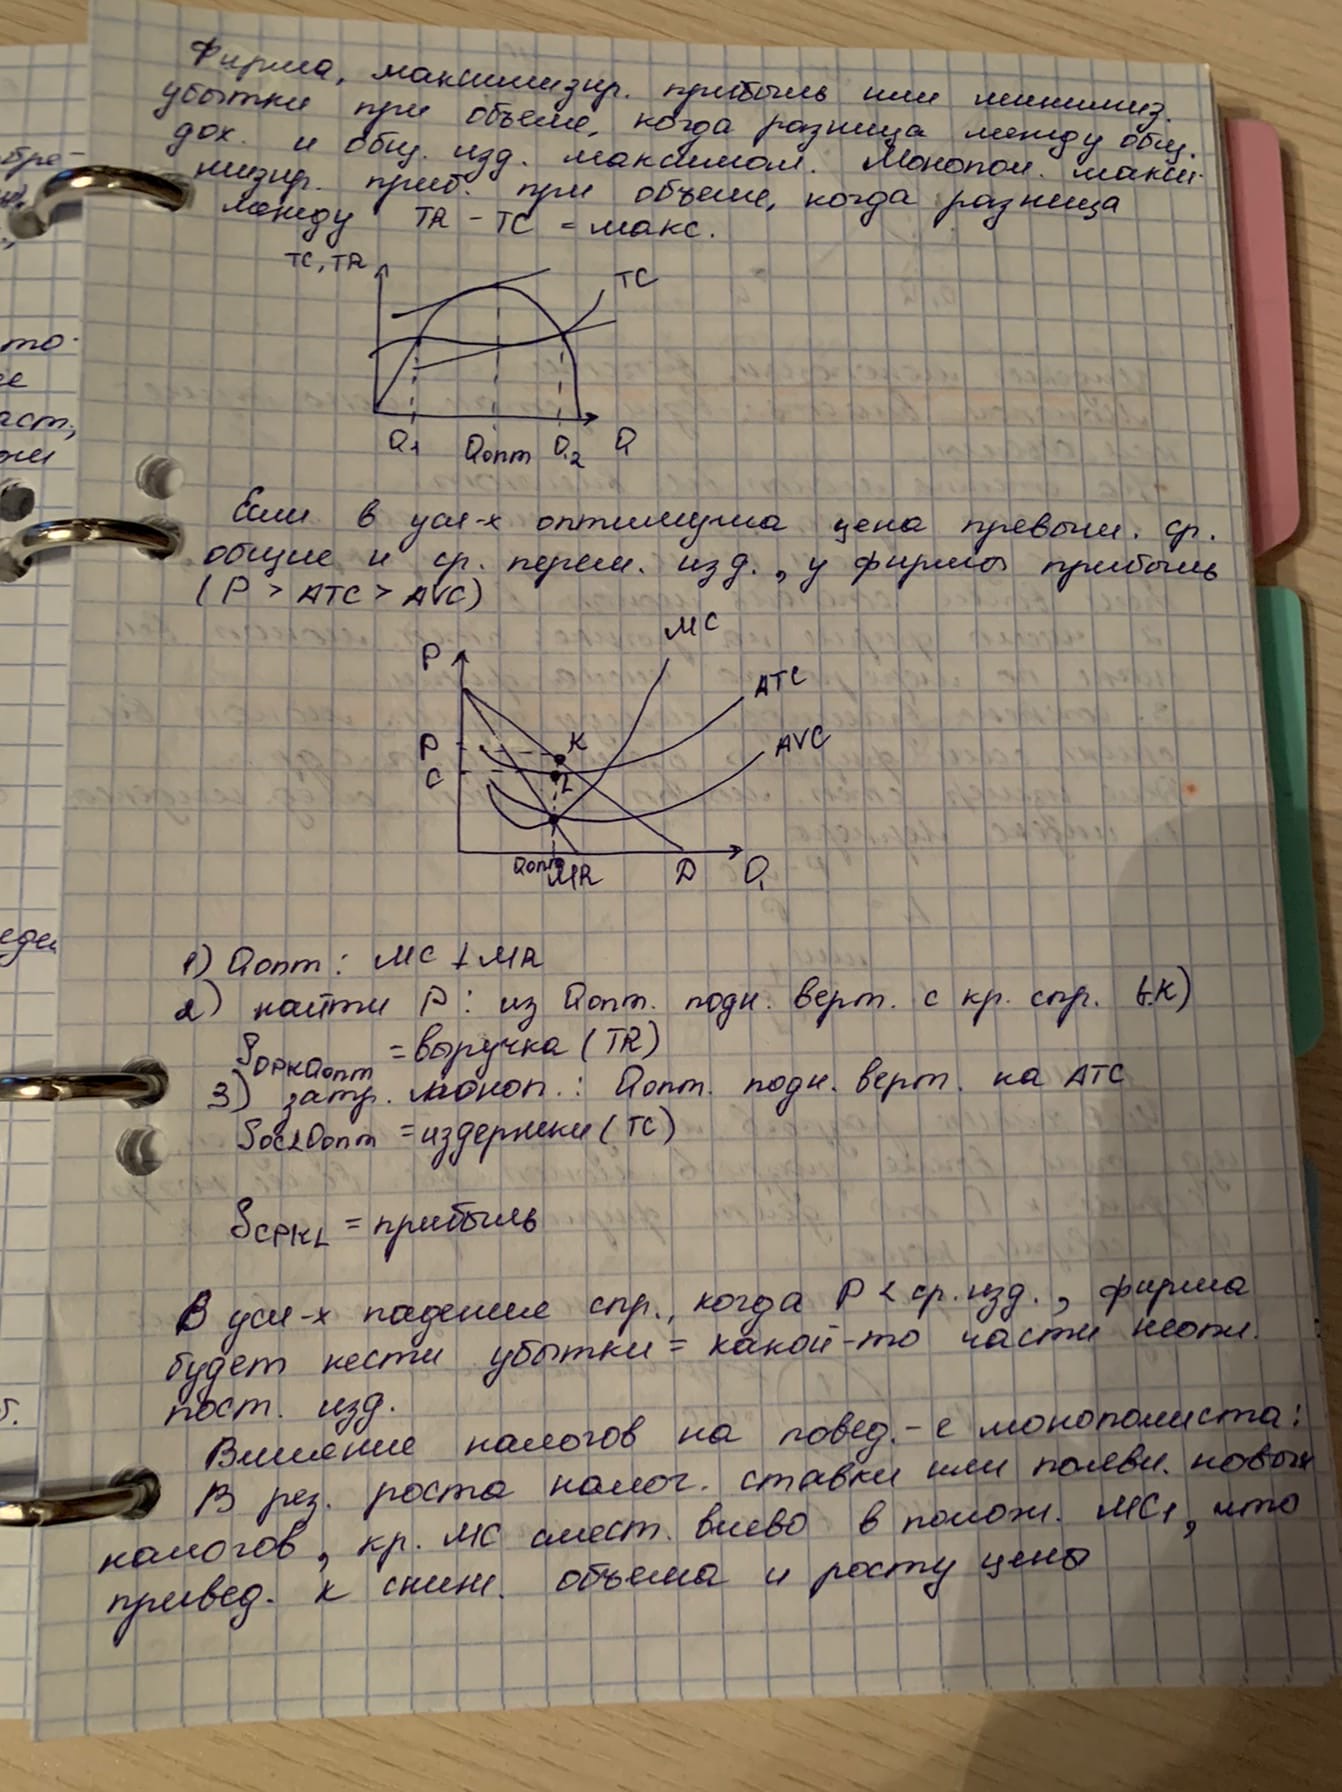 Фирма, максимизир. прибыль или минимиз.
убытки при объеме, когда разница между общ.
дох. и общ. изд. максимал. Монопол. макси-
мизир. приб. при объеме, когда разница
между TR - TC = макс.
TC, TR
TC
Q1 Qопт Q2 Q
Если в усл-х оптимума цена превыш. ср.
общие и ср. перем. изд., у фирмы прибыль
(P > ATC > AVC)
MC
P
ATC
P
K
AVC
C
L
Qопт
MR D Q
1) Qопт: MC ⊥ MR
2) найти P: из Qопт. подн. верт. с кр. спр. (т.К)
S OPKQопт = выручка (TR)
3) затр. моноп.: Qопт. подн. верт. на ATC
S OCLQопт = издержки (TC)
S CPKL = прибыль
В усл-х падение спр., когда P < ср. изд., фирма
будет нести убытки = какой-то части
пост. изд.
Влияние налогов на повед.-е монополиста:
В рез. роста налог. ставки или появл. новых
налогов, кр. MC смест. влево в полож. MC1, что
привед. к сниж. объема и росту цены
бре-
то-
ее
аст,